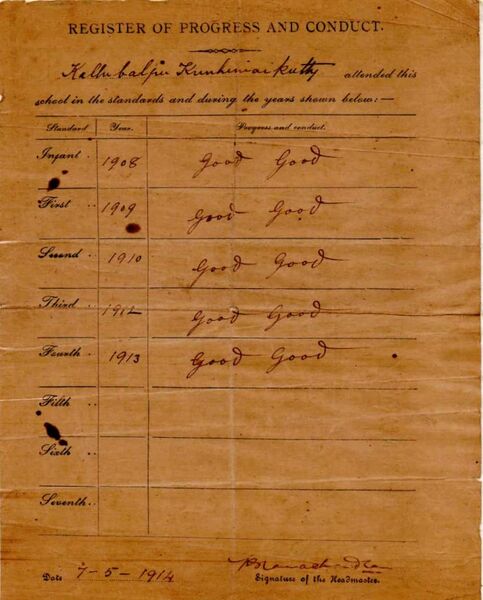 REGISTER OF PROGRESS AND CONDUCT.
attended this
school in the standards and during the years shown below:—
Standard Year. Progress and conduct.
Infant .. 1908 Good Good
First .. 1909 Good Good
Second .. 1910 Good Good
Third .. 1912 Good Good
Fourth .. 1913 Good Good
Fifth ..
Sixth ..
Seventh ..
Date 7-5-1914
Signature of the Headmaster.